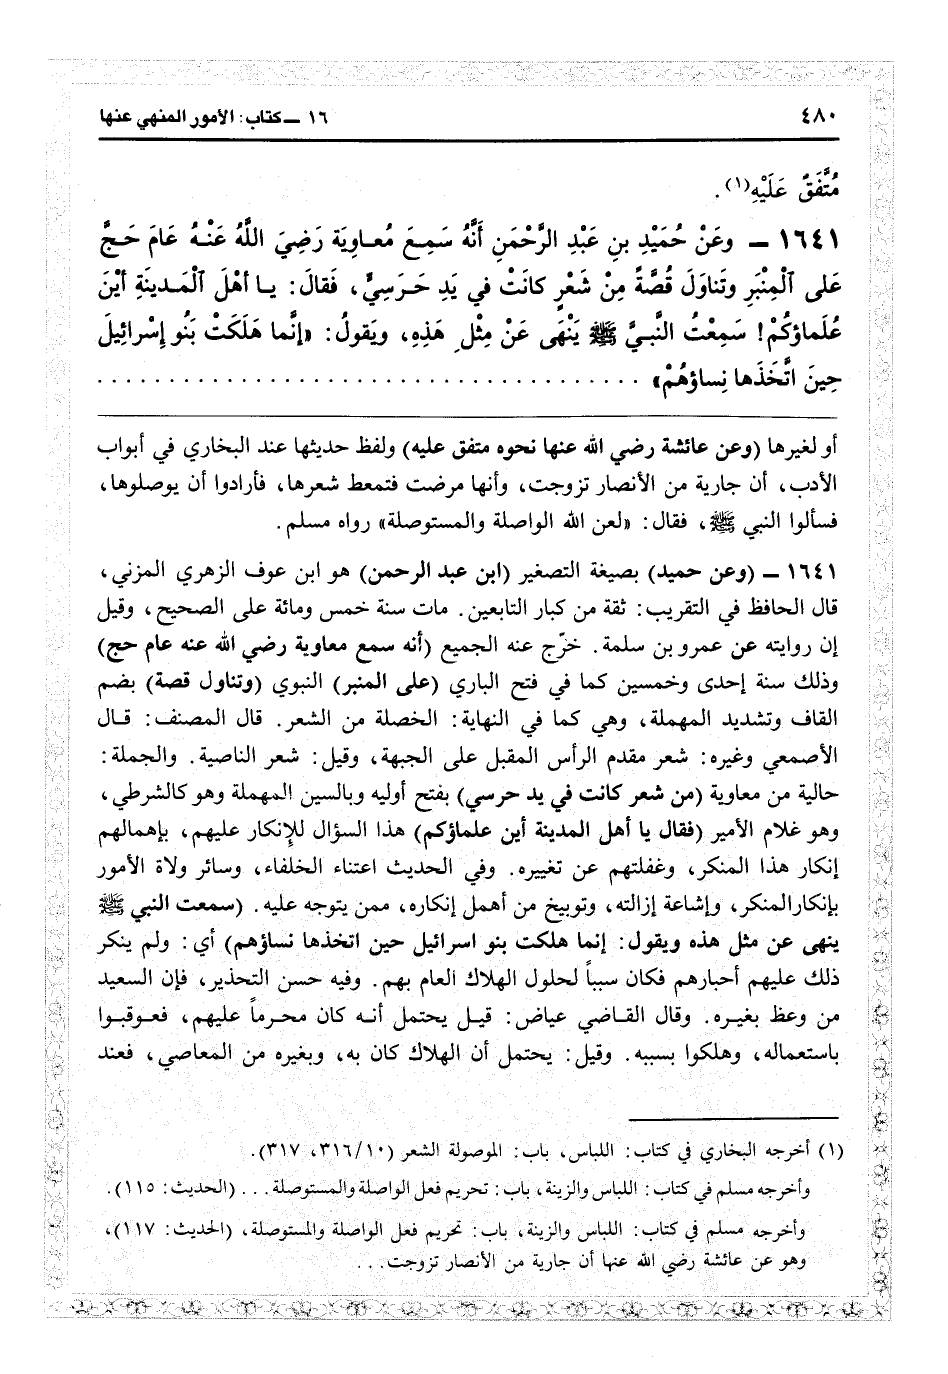 ٤٨٠ ١٦ ــ كتاب: الأمور المنهي عنها
مُتَّفَقٌ عَلَيْهِ(١).
١٦٤١ ــ وعَنْ حُمَيْدِ بنِ عَبْدِ الرَّحْمَنِ أَنَّهُ سَمِعَ مُعاوِيَةَ رَضِيَ اللَّهُ عَنْهُ عَامَ حَجَّ
عَلى ٱلْمِنْبَرِ وتَناوَلَ قُصَّةً مِنْ شَعْرٍ كانَتْ في يَدِ حَرَسِيٍّ، فَقالَ: يـا أهْلَ ٱلْمَدينَةِ أيْنَ
عُلَماؤكُمْ! سَمِعْتُ النَّبيَّ ﷺ يَنْهَى عَنْ مِثْلِ هَذِهِ، ويَقولُ: «إنَّما هَلَكَتْ بَنُو إسْرائِيلَ
حِينَ اتَّخَذَها نِساؤهُمْ» . . . . . . . . . . . . . . . . . . . . . . . . . . . . . . . . . . . . . .
أو لغيرها (وعن عائشة رضي الله عنها نحوه متفق عليه) ولفظ حديثها عند البخاري في أبواب
الأدب، أن جارية من الأنصار تزوجت، وأنها مرضت فتمعط شعرها، فأرادوا أن يوصلوها،
فسألوا النبي ﷺ، فقال: «لعن الله الواصلة والمستوصلة» رواه مسلم.
١٦٤١ ــ (وعن حميد) بصيغة التصغير (ابن عبد الرحمن) هو ابن عوف الزهري المزني،
قال الحافظ في التقريب: ثقة من كبار التابعين. مات سنة خمس ومائة على الصحيح، وقيل
إن روايته عن عمرو بن سلمة. خرّج عنه الجميع (أنه سمع معاوية رضي الله عنه عام حج)
وذلك سنة إحدى وخمسين كما في فتح الباري (على المنبر) النبوي (وتناول قصة) بضم
القاف وتشديد المهملة، وهي كما في النهاية: الخصلة من الشعر. قال المصنف: قـال
الأصمعي وغيره: شعر مقدم الرأس المقبل على الجبهة، وقيل: شعر الناصية. والجملة:
حالية من معاوية (من شعر كانت في يد حرسي) بفتح أوليه وبالسين المهملة وهو كالشرطي،
وهو غلام الأمير (فقال يا أهل المدينة أين علماؤكم) هذا السؤال للإنكار عليهم، بإهمالهم
إنكار هذا المنكر، وغفلتهم عن تغييره. وفي الحديث اعتناء الخلفاء، وسائر ولاة الأمور
بإنكارالمنكر، وإشاعة إزالته، وتوبيخ من أهمل إنكاره، ممن يتوجه عليه. (سمعت النبي ﷺ
ينهى عن مثل هذه ويقول: إنما هلكت بنو اسرائيل حين اتخذها نساؤهم) أي: ولم ينكر
ذلك عليهم أحبارهم فكان سبباً لحلول الهلاك العام بهم. وفيه حسن التحذير، فإن السعيد
من وعظ بغيـره. وقال القـاضي عياض: قيـل يحتمل أنـه كان محـرماً عليهم، فعـوقبـوا
باستعماله، وهلكوا بسببه. وقيل: يحتمل أن الهلاك كان به، وبغيره من المعاصي، فعند
(١) أخرجه البخاري في كتاب: اللباس، باب: الموصولة الشعر (٣١٦/١٠، ٣١٧).
وأخرجه مسلم في كتاب: اللباس والزينة، باب: تحريم فعل الواصلة والمستوصلة. . . (الحديث: ١١٥).
وأخرجه مسلم في كتاب: اللباس والزينة، باب: تحريم فعل الواصلة والمستوصلة، (الحديث: ١١٧)،
وهو عن عائشة رضي الله عنها أن جارية من الأنصار تزوجت. . .